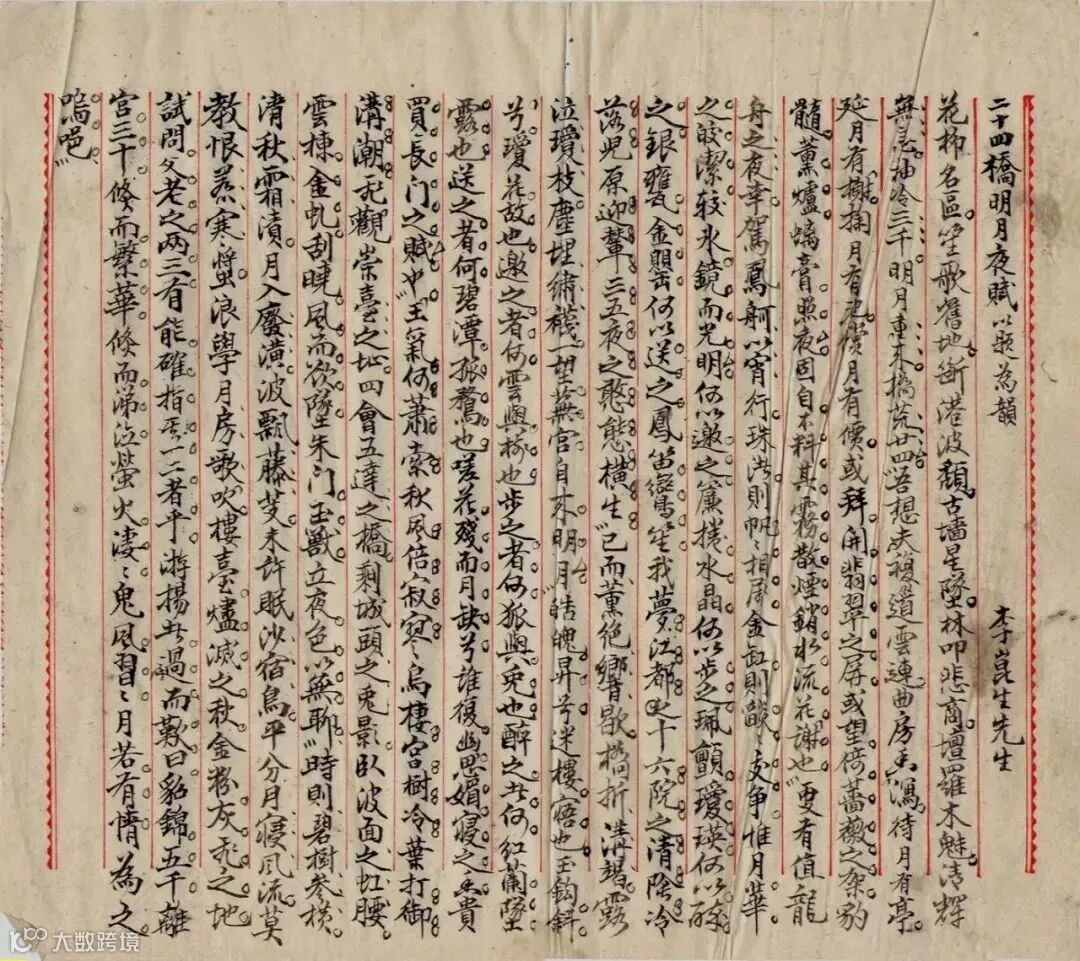 二十四橋明月夜賦以題為韻 李崑生先生
花柳名區笙歌舊地斷港波頹古牆星墜林叩悲商壇羅木魅清輝
無恙袖冷三千明月重來橋荒廿四吾想夫複道雲連曲房香瀉待月有亭
延月有榭掬月有池償月有價或拜開翡翠之屏或望倚薔薇之架豹
髓薰爐螭膏照夜固自不料其霧散煙銷水流花謝也更有值龍
舟之夜幸駕鳳舸以宵行珠湾則帆々相屬金缸則燄々交爭惟月華
之皎潔較氷鏡而光明何以邀之簾捲水晶何以步之珮顫瓊瑛何以酔
之銀甕金罌何以送之鳳笛鸞笙我夢江都之十六院之清陰冷
落况原迎輦三五夜之憨態橫生已而薰絶響歇橋折溝竭露
泣瓊枝塵埋繡襪望蕪宮自來明月皓魄昇兮迷樓寤也玉鈎斜
兮瓊花故也邀之者何雲與榆也步之者何狐與兎也醉之者何紅蘭墜
露也送之者何碧潭孤鶩也嗟花殘而月缺兮誰復幽思媚寢之香貴
買長门之賦也王氣何蕭索秋風倍寂寞々烏棲宮樹冷葉打御
溝潮死觀崇臺之址四會五達之橋剩城頭之兎影臥波面之虹腰
雲棟金虬刮曉風而欲墜朱门玉獸立夜色以無聊時則碧樹參橫
清秋霜漬月入廢潢波飄藤芰未許眠沙宿鳥平分月寢風流莫
教恨蕊寒螿浪學月房歌吹樓臺燼滅之秋金粉灰飛之地
試問父老之兩三有能確指其一二者乎游揚者過而歎曰貂錦五千離
宮三十倏而繁華倏而涕泣螢火淒々鬼風習々月若有情為之
嗚唈
大数跨境